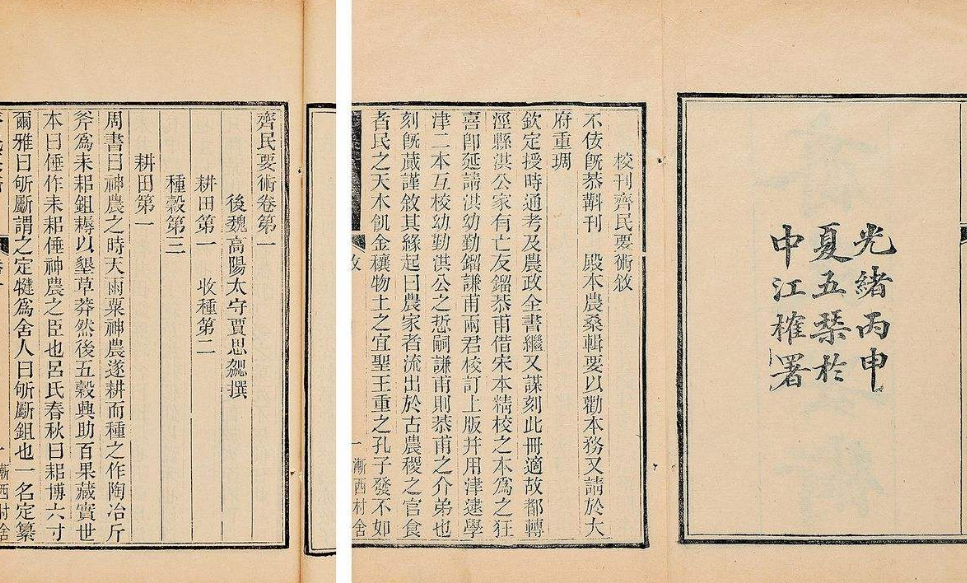 光緒丙申
夏五琹於
中江榷署
校刊齊民要術敘
不佞旣恭斠刊 殿本農桑輯要以勸本務又請於大
府重琱
欽定授時通考及農政全書繼又謀刻此冊適故都轉
涇縣洪公家有亡友鎦恭甫借宋本精校之本爲之狂
喜卽延請洪幼勤鎦謙甫兩君校訂上版幷用津逮學
津二本互校幼勤洪公之悊嗣謙甫則恭甫之介弟也
刻旣蕆謹敘其緣起曰農家者流出於古農稷之官食
者民之天木飢金穰物土之宜聖王重之孔子發不如
一 漸西村舍
齊民要術卷第一
後魏高陽太守賈思勰撰
耕田第一 收種第二
種穀第三
耕田第一
周書曰神農之時天雨粟神農遂耕而種之作陶冶斤
斧爲耒耜鉏耨以墾草莽然後五穀興助百果藏實世
本曰倕作耒耜倕神農之臣也呂氏春秋曰耜博六寸
爾雅曰斪斸謂之定犍爲舍人曰斪斸鉏也一名定纂
一 漸西村舍